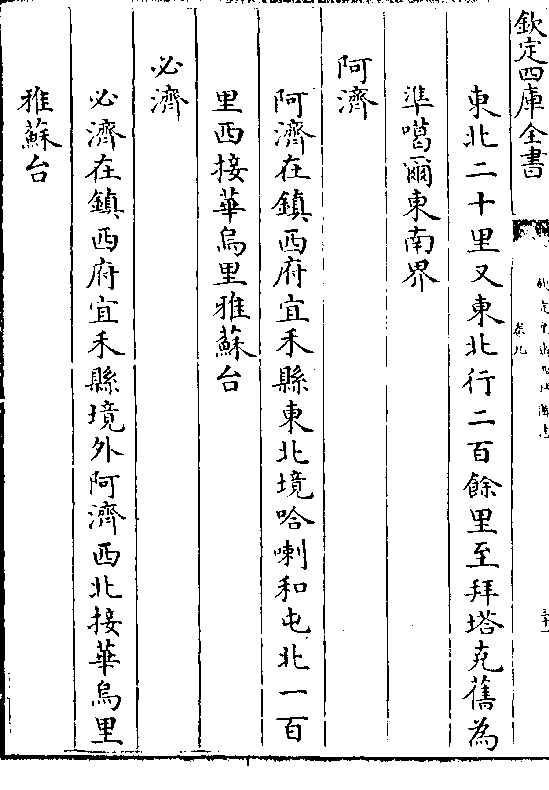 欽定四庫全書
卷九
東北二十里又東北行二百餘里至拜塔克舊為
準噶爾東南界
阿濟
阿濟在鎮西府宜禾縣東北境哈喇和屯北一百
里西接華烏里雅蘇台
必濟
必濟在鎮西府宜禾縣境外阿濟西北接華烏里
雅蘇台